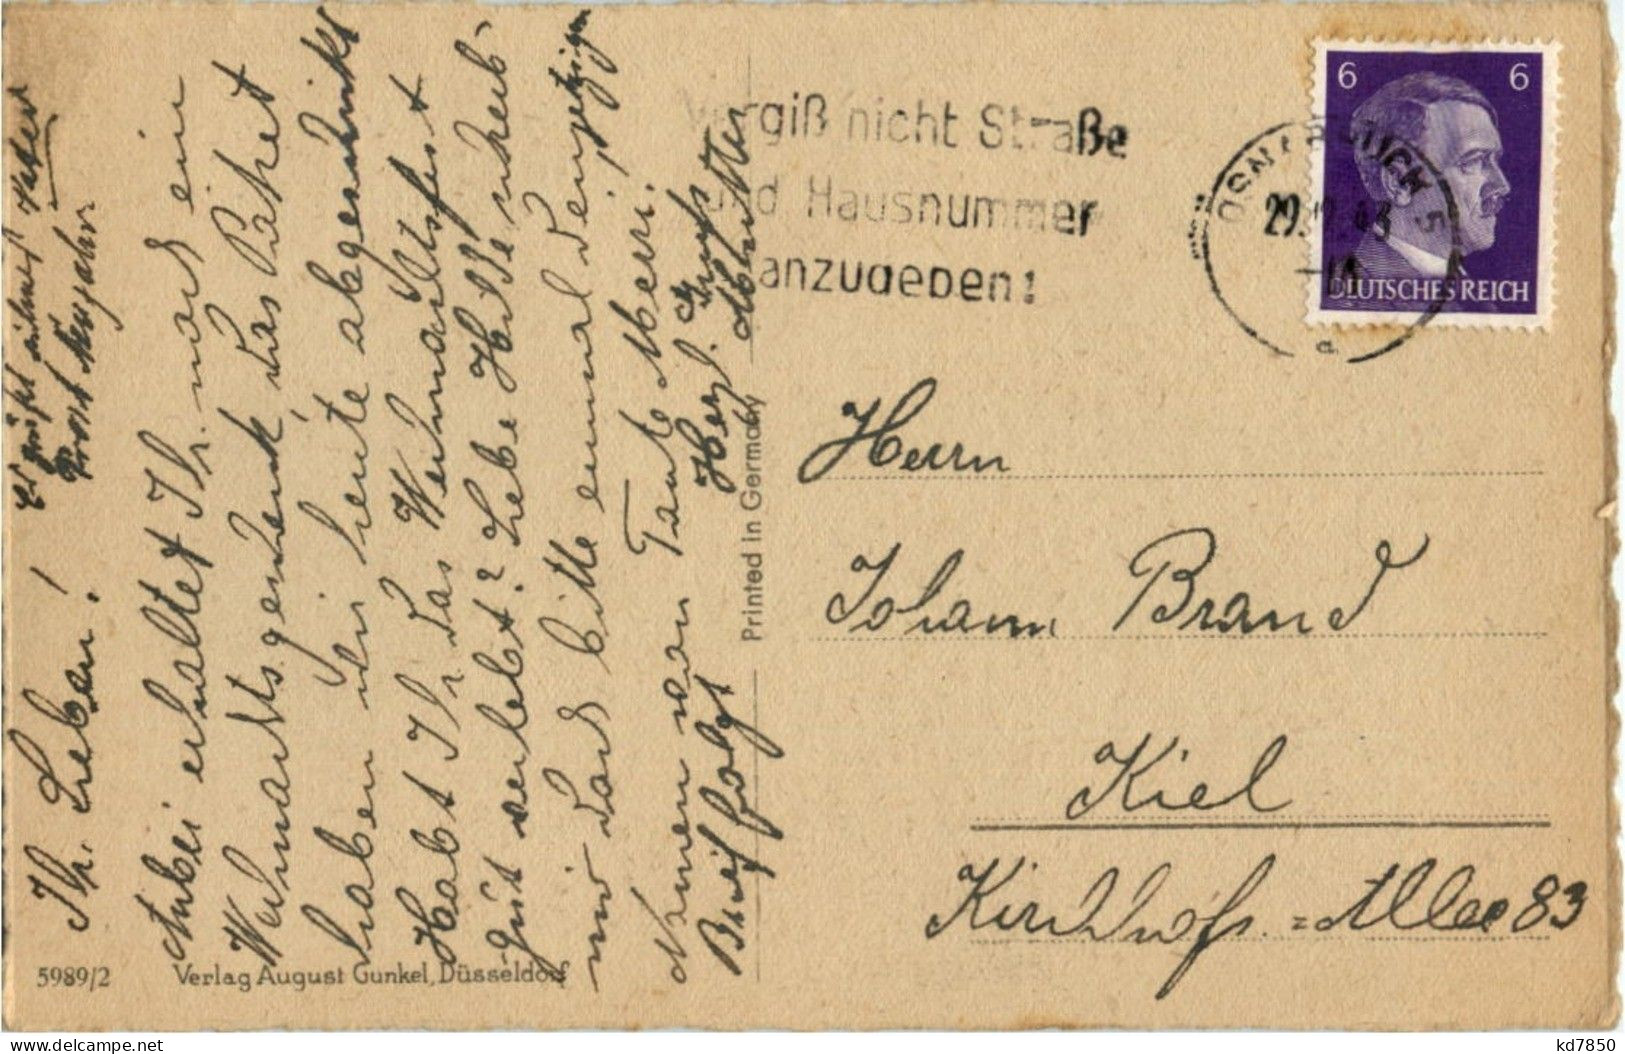 Er grüßt
Prost Neujahr
Ihr Lieben!
Anbei erhaltet Ihr noch ein
Weihnachtsgeschenk, das Paket
haben wir heute abgeschickt
Habt Ihr das Weihnachtsfest
gut verlebt? Liebe Hilde schreib
mir doch bitte einmal den jetzigen
Namen von Tante Merri.
Brief folgt Herzl. Gruß
Mutter
5989/2 Verlag August Gunkel, Düsseldorf
Printed in Germany
Vergiß nicht Straße
und Hausnummer
anzugeben!
OSNABRÜCK 5
29.12.43
a
6 6
DEUTSCHES REICH
Herrn
Johann Brand
Kiel
Kirchhofs.=Allee 83
kd7850
delcampe.net